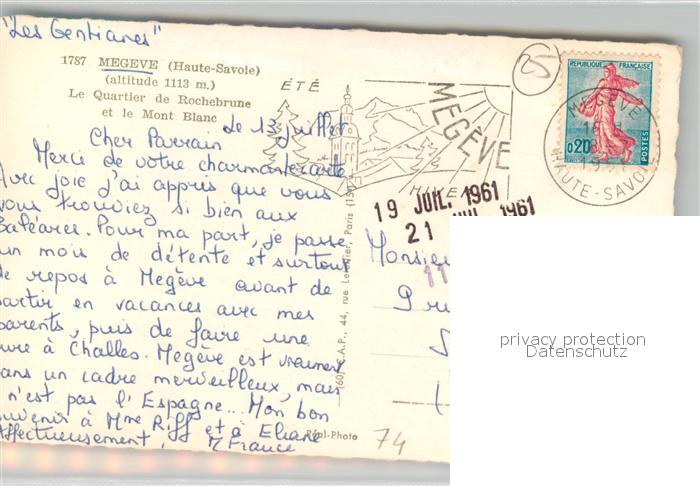 "Les Gentianes"
1787 MEGEVE (Haute-Savoie)
(altitude 1113 m.)
Le Quartier de Rochebrune
et le Mont Blanc
Le 13 juillet
Cher Parrain
Merci de votre charmante carte
Avec joie j'ai appris que vous
vous trouviez si bien aux
Baléares. Pour ma part, je passe
un mois de détente et surtout
de repos à Megève avant de
partir en vacances avec mes
parents, puis de faire une
cure à Challes. Megève est vraiment
dans un cadre merveilleux, mais
n'est pas l'Espagne... Mon bon
souvenir à Mme Riff et à Eliane
Affectueusement,
France
ÉTÉ
MEGÈVE
HIVER
RÉPUBLIQUE FRANÇAISE
0,20
POSTES
MEGÈVE
HAUTE-SAVOIE
19 JUIL. 1961
21 1961
Monsieur
11
(60) E.A.P., 44, rue Letellier, Paris (15e)
Réal-Photo
74
privacy protection
Datenschutz